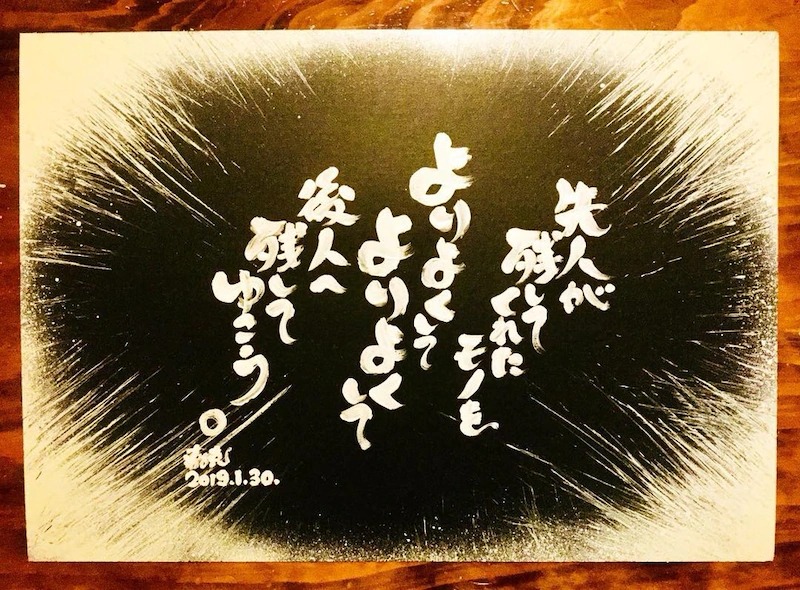 先人が
残して
くれた
モノを
よりよくして
よりよく
して
後人へ
残して
ゆこう。
2019.1.30.